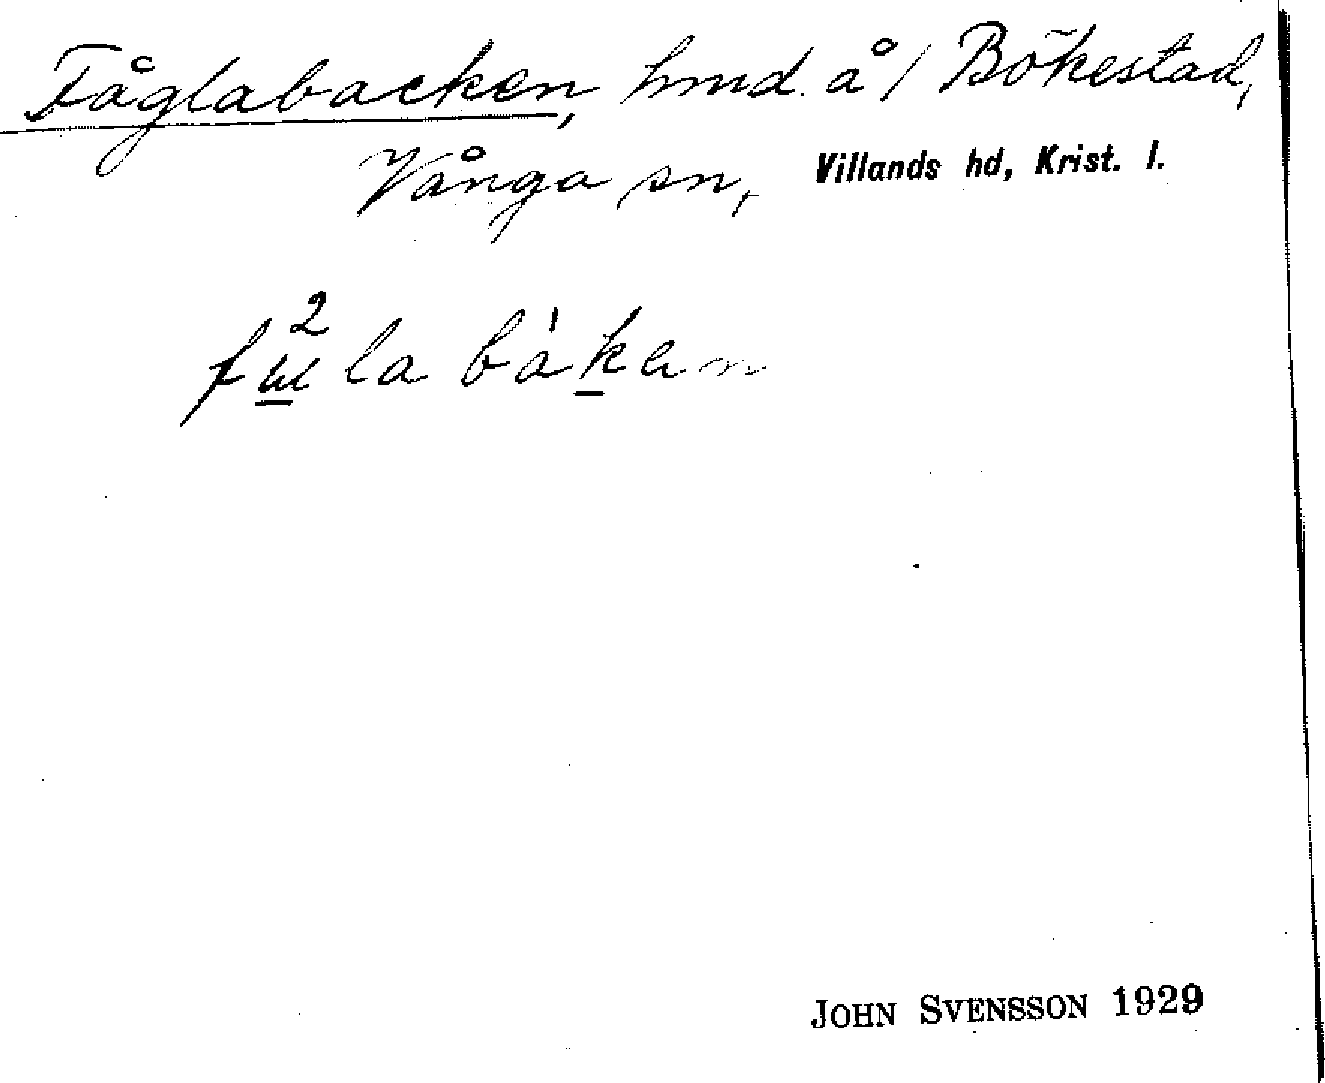 Fåglabacken, hmd. å / Bökestad,
Vånga sn, Villands hd, Krist. l.
2
la bákan
JOHN SVENSSON 1929